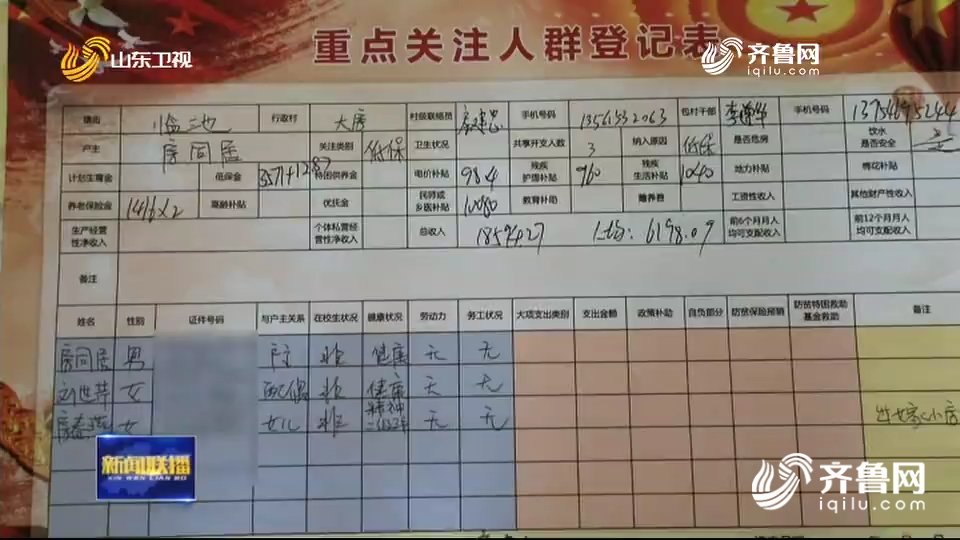 山东卫视
重点关注人群登记表
齐鲁网
iqilu.com
镇街 临池 行政村 大房 村级联络员 手机号码 13561332063 包村干部 手机号码
户主 房同居 关注类别 低保 卫生状况 共享开支人数 3 纳入原因 低保 是否危房 饮水是否安全
计划生育金 低保金 特困供养金 电价补贴 98.4 残疾护理补贴 960 残疾生活补贴 1040 地力补贴 棉花补贴
养老保险金 1416×2 高龄补贴 优抚金 民师或乡医补贴 10080 教育补助 赡养费 工资性收入 其他财产性收入
生产经营性净收入 个体私营经营性净收入 总收入 18594.27 人均:6198.09 前6个月月人均可支配收入 前12个月月人均可支配收入
备注
姓名 性别 证件号码 与户主关系 在校生状况 健康状况 劳动力 务工状况 大项支出类别 支出金额 政策补助 自负部分 防贫保险报销 防贫特困救助基金救助 备注
房同居 男 户主 非 健康 无 无
女 配偶 非 健康 无 无
女 女儿 非 精神二级 无 无
新闻联播
XIN WEN LIAN BO
齐鲁网
iqilu.com